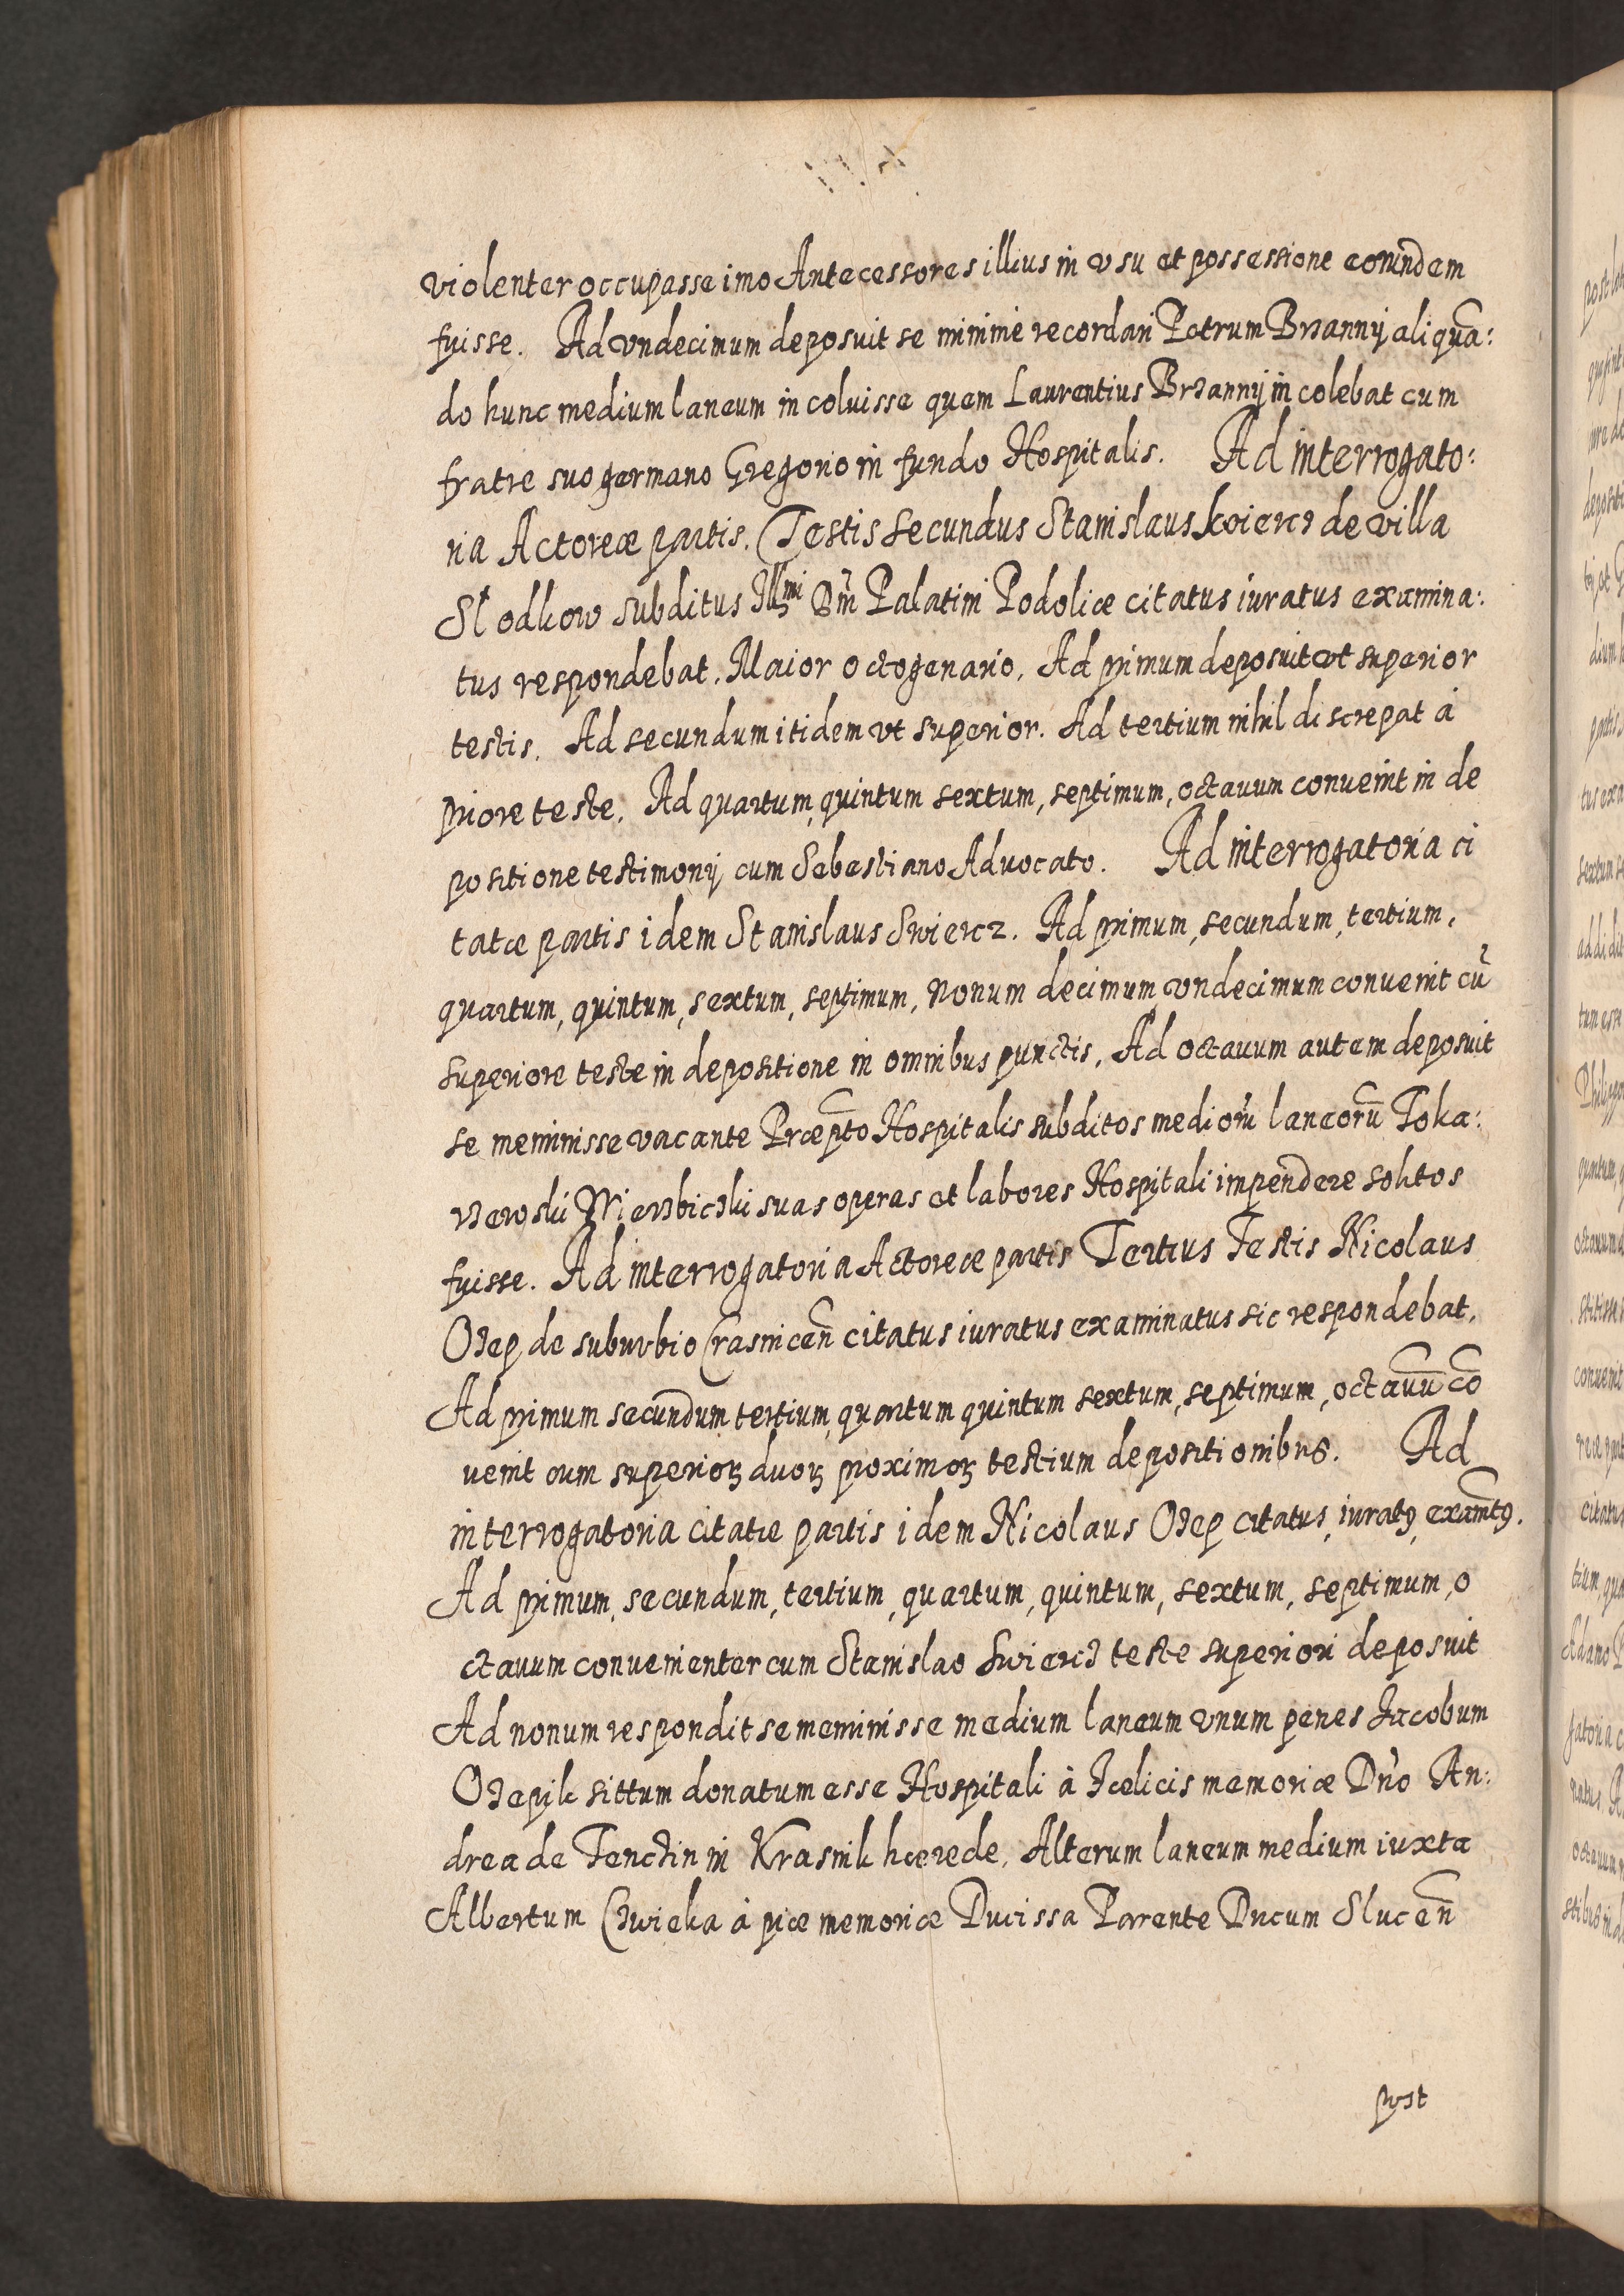 violenter occupasse imo Antecessores illius in vsu et possessione eorundem
fuisse. Ad vndecimum deposuit se minime recordari Petrum Brzanny aliqua᷃:
do hunc medium laneum incoluisse quem Laurentius Brzanny incolebat cum
fratre suo germano Gregorio in fundo Hospitalis. Ad interrogato:
ria Actoreæ partis. Testis secundus Stanislaus de villa
Słodkow subditus Illmi Dni Palatini Podoliæ citatus iuratus examina:
tus respondebat. Maior octogenario. Ad primum deposuit vt superior
testis. Ad secundum itidem vt superior. Ad tertium nihil discrepat à
priore teste. Ad quartum, quintum sextum, septimum, octauum conuenit in de
positione testimonij cum Sebastiano Aduocato. Ad interrogatoria ci
tatæ partis idem Stanislaus Swiercz. Ad primum, secundum, tertium,
quartum, quintum, sextum, septimum, nonum decimum vndecimum conuenit cū
superiore teste in depositione in omnibus punctis. Ad octauum autem deposuit
se meminisse vacante Præpto Hospitalis subditos mediorū laneorū Toka:
rzewski Wierzbicski suas operas et labores Hospitali impendere solitos
fuisse. Ad interrogatoria Actoreæ partis Tertius Testis Nicolaus
Ozep de suburbio Crasnicen̄ citatus iuratus examinatus sic respondebat.
Ad primum secundum, tertium, quartum quintum sextum, septimum, octauū cō
uenit cum superioꝝ duoꝝ proximoꝝ testium depositionibus. Ad
interrogatoria citatæ partis idem Nicolaus Ozep citatus, iuratꝰ, examtꝰ.
Ad primum, secundum, tertium, quartum, quintum, sextum, septimum, o
ctauum conuenienter cum Stanislao Swiercz teste superiori deposuit
Ad nonum respondit se meminisse medium laneum vnum penes Jacobum
Ozepik sittum donatum esse Hospitali à Fœlicis memoriæ Dno An:
drea de Tenczin in Krasnik hærede. Alterum laneum medium iuxta
Albertum Czwieka à piæ memoriæ Ducissa Parente Ducum Slucen̄
post